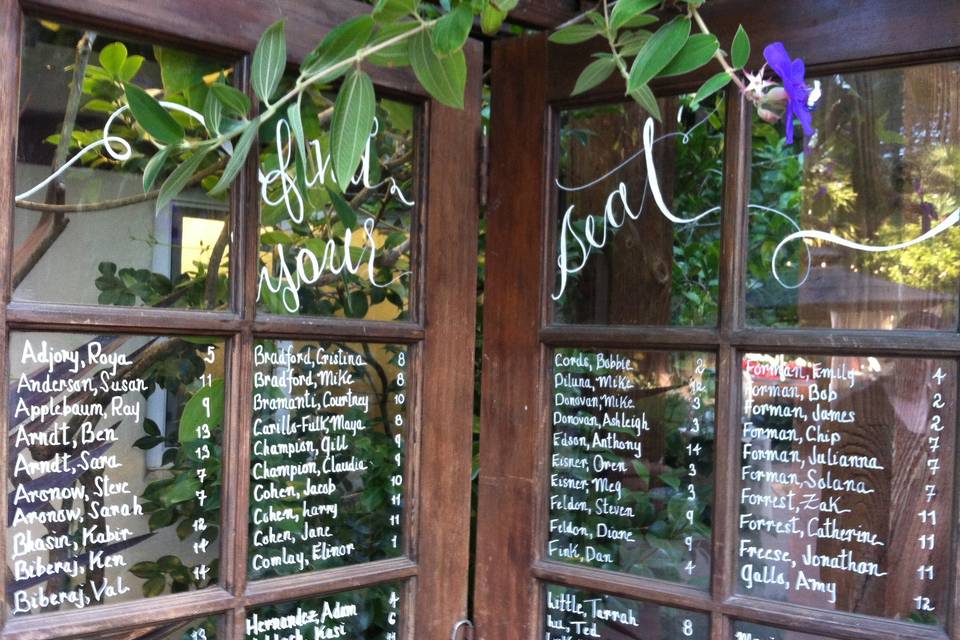 find your seat
Adjory, Roya 5
Anderson, Susan 11
Applebaum, Ray 9
Arndt, Ben 13
Arndt, Sara 13
Aronow, Steve 7
Aronow, Sarah 7
Bhasin, Kabir 12
Biberaj, Ken 14
Biberaj, Val 14
Bradford, Cristina 8
Bradford, Mike 8
Bramanti, Courtney 10
Carillo-Fulk, Maya 8
Champion, Gill 9
Champion, Claudia 9
Cohen, Jacob 10
Cohen, harry 11
Cohen, Jane 11
Comlay, Elinor 1
Cords, Bobbie 2
Diluna, Mike 12
Donovan, Mike 3
Donovan, Ashleigh 3
Edson, Anthony 14
Eisner, Oren 3
Eisner, Meg 3
Feldon, Steven 9
Feldon, Diane 9
Fink, Dan 4
Forman, Emily 4
Forman, Bob 2
Forman, James 2
Forman, Chip 7
Forman, Julianna 7
Forman, Solana 7
Forrest, Zak 11
Forrest, Catherine 11
Freese, Jonathan 11
Galls, Amy 12
13
Hernandez, Adam 4
Kasi
Little, Tarrah 8
Ted